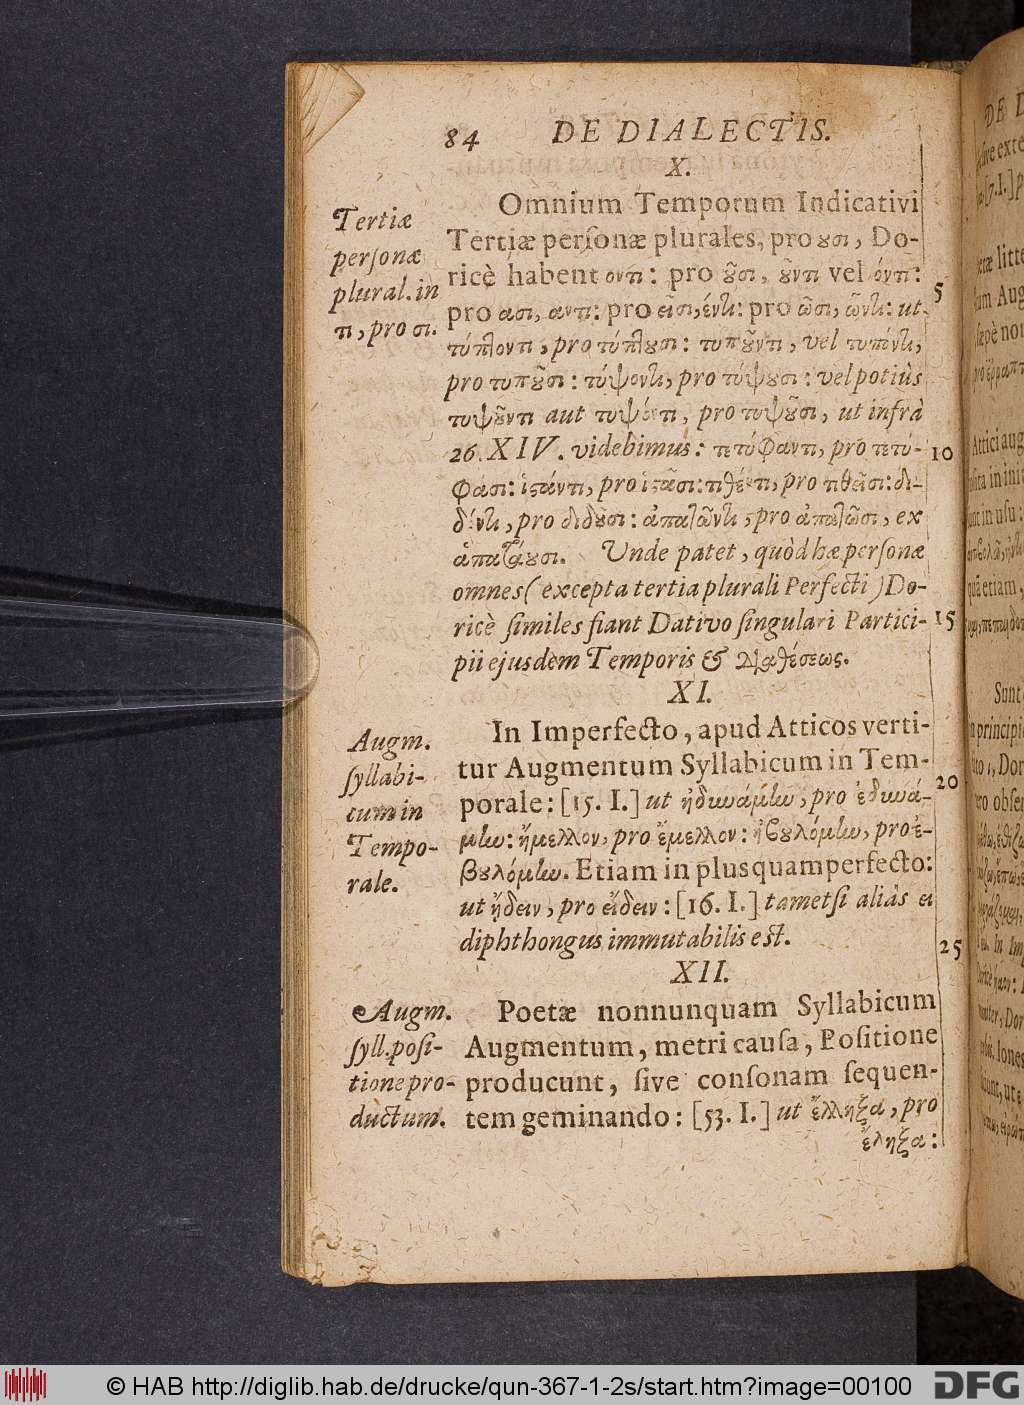 84 DE DIALECTIS.
X.
Omnium Temporum Indicativi
Tertiæ perſonæ plurales, pro ουσι, Do-
ricè habent οντι: pro οῦσι, οῦντι vel όντι:
pro ασι, αντι: pro εῖσι, έντι: pro ῶσι, ῶντι: ut
τύπτοντι, pro τύπτουσι: τυποῦντι, vel τυπόντι,
pro τυποῦσι: τύψοντι, pro τύψουσι: vel potiùs
τυψοῦντι aut τυψόντι, pro τυψοῦσι, ut infrà
26. XIV. videbimus: τετύφαντι, pro τετύ-
φασι: ἱστάντι, pro ἱστᾶσι: τιθέντι, pro τιθεῖσι: δι-
δόντι, pro διδοῦσι: ἀπατῶντι, pro ἀπατῶσι, ex
ἀπατάουσι. Unde patet, quòd hæ perſonæ
omnes (excepta tertia plurali Perfecti) Do-
ricè ſimiles fiant Dativo ſingulari Partici-
pii ejusdem Temporis & Διαθέσεως.
Tertiæ
perſonæ
plural. in
τι, pro σι.
5
10
15
XI.
In Imperfecto, apud Atticos verti-
tur Augmentum Syllabicum in Tem-
porale: [15. I.] ut ἠδυνάμην, pro ἐδυνά-
μην: ἤμελλον, pro ἔμελλον: ἠβουλόμην, pro ἐ-
βουλόμην. Etiam in plusquamperfecto:
ut ᾔδειν, pro εἴδειν: [16. I.] tametſi aliàs ει
diphthongus immutabilis est.
Augm.
ſyllabi-
cum in
Tempo-
rale.
20
25
XII.
Poetæ nonnunquam Syllabicum
Augmentum, metri cauſa, Poſitione
producunt, ſive conſonam ſequen-
tem geminando: [53. I.] ut ἔλληξα, pro
ἔληξα:
Augm.
ſyll. poſi-
tione pro-
ductum.
© HAB http://diglib.hab.de/drucke/qun-367-1-2s/start.htm?image=00100
DFG